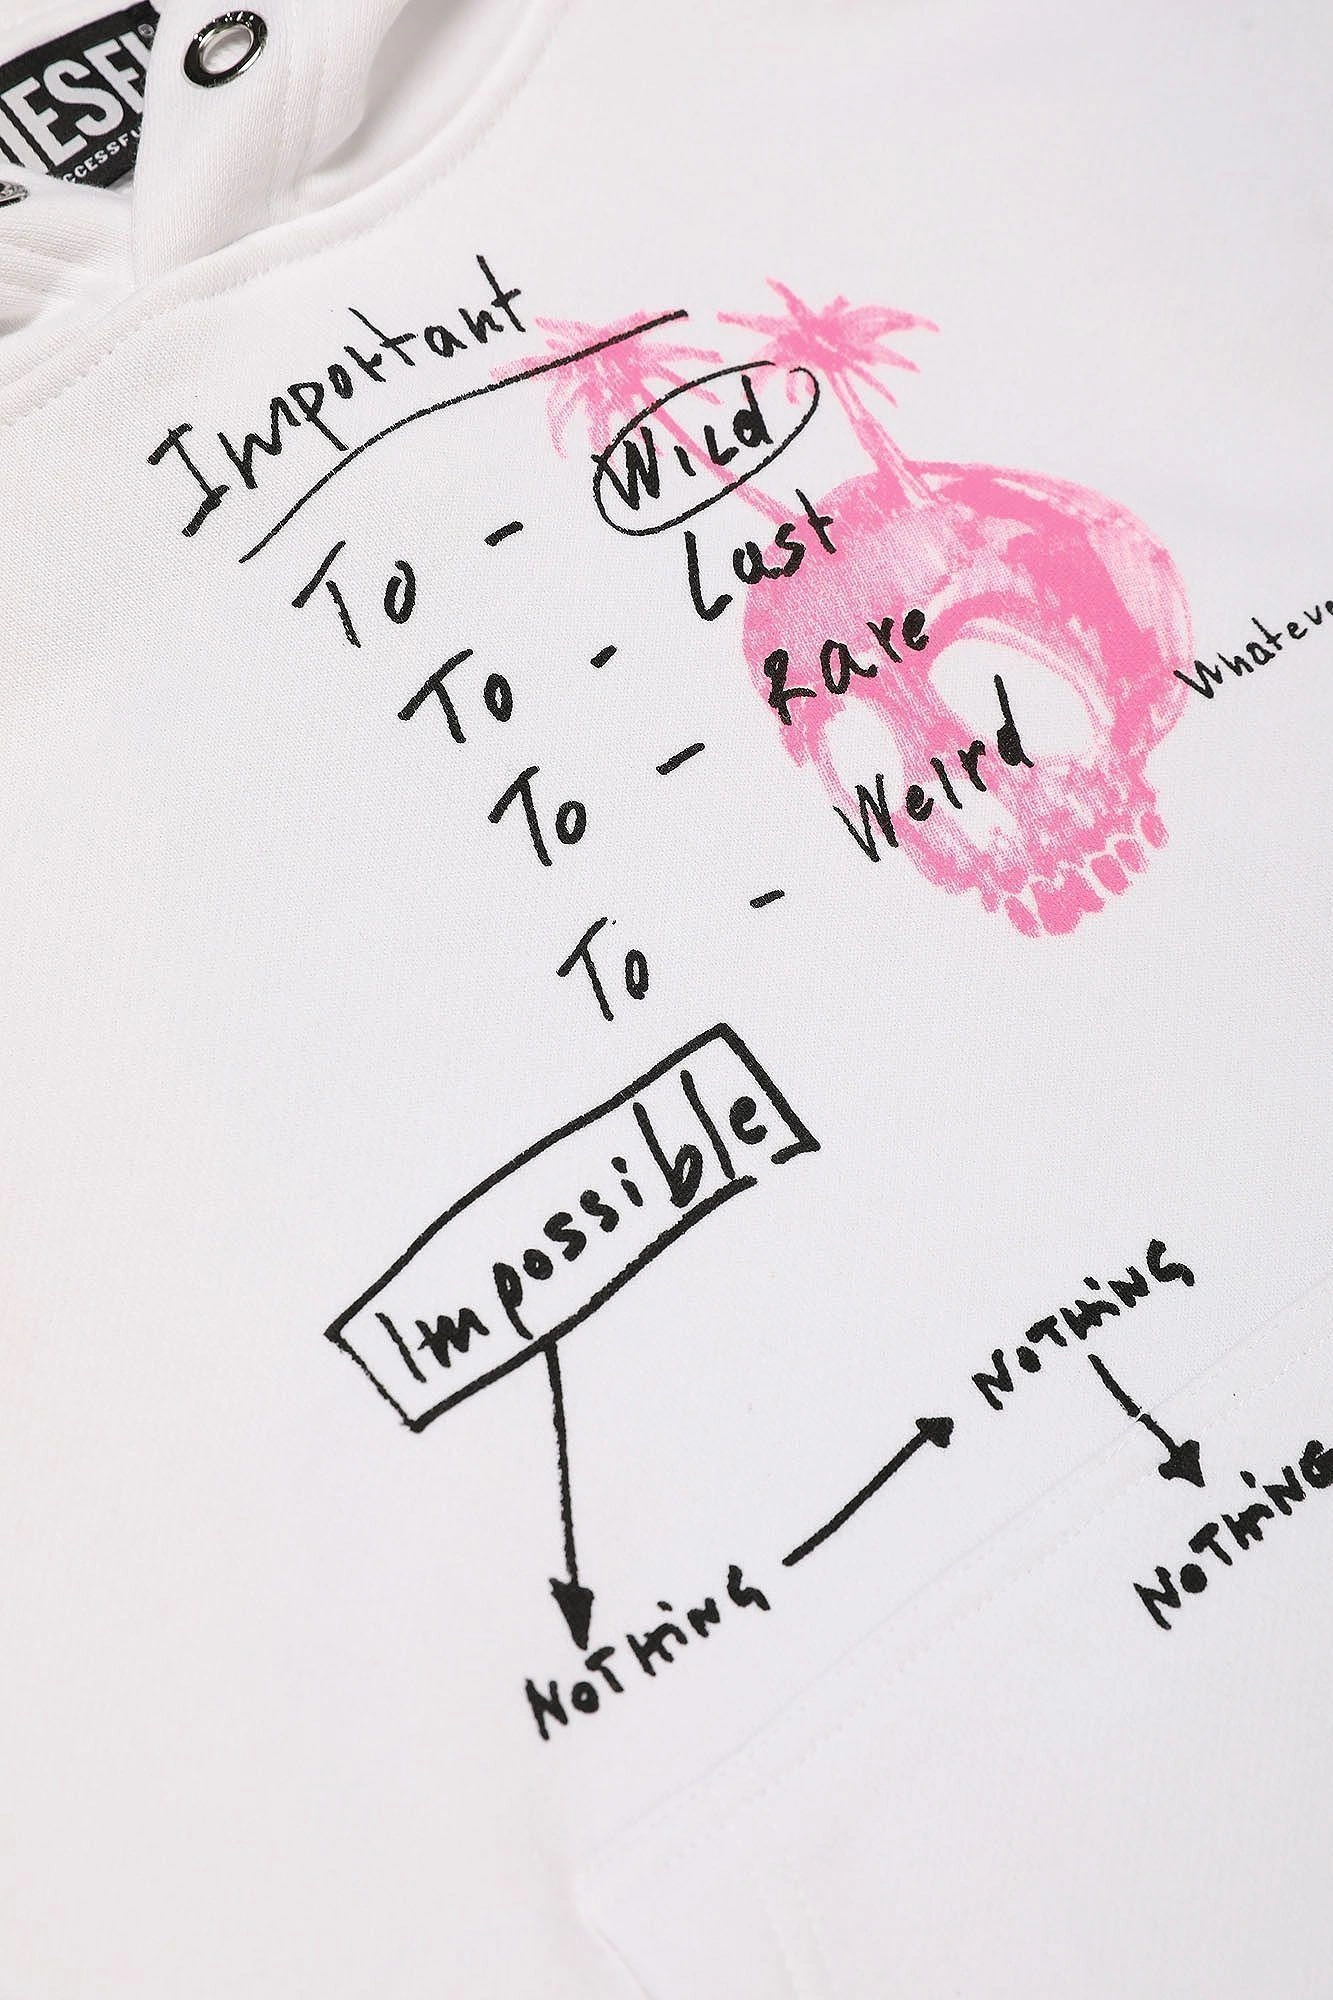 IESEL
CCESSFU
Important
To - Wild
To - Last
To - Rare
Whateve
To - Weird
Impossible
NOTHING
NOTHING
NOTHING